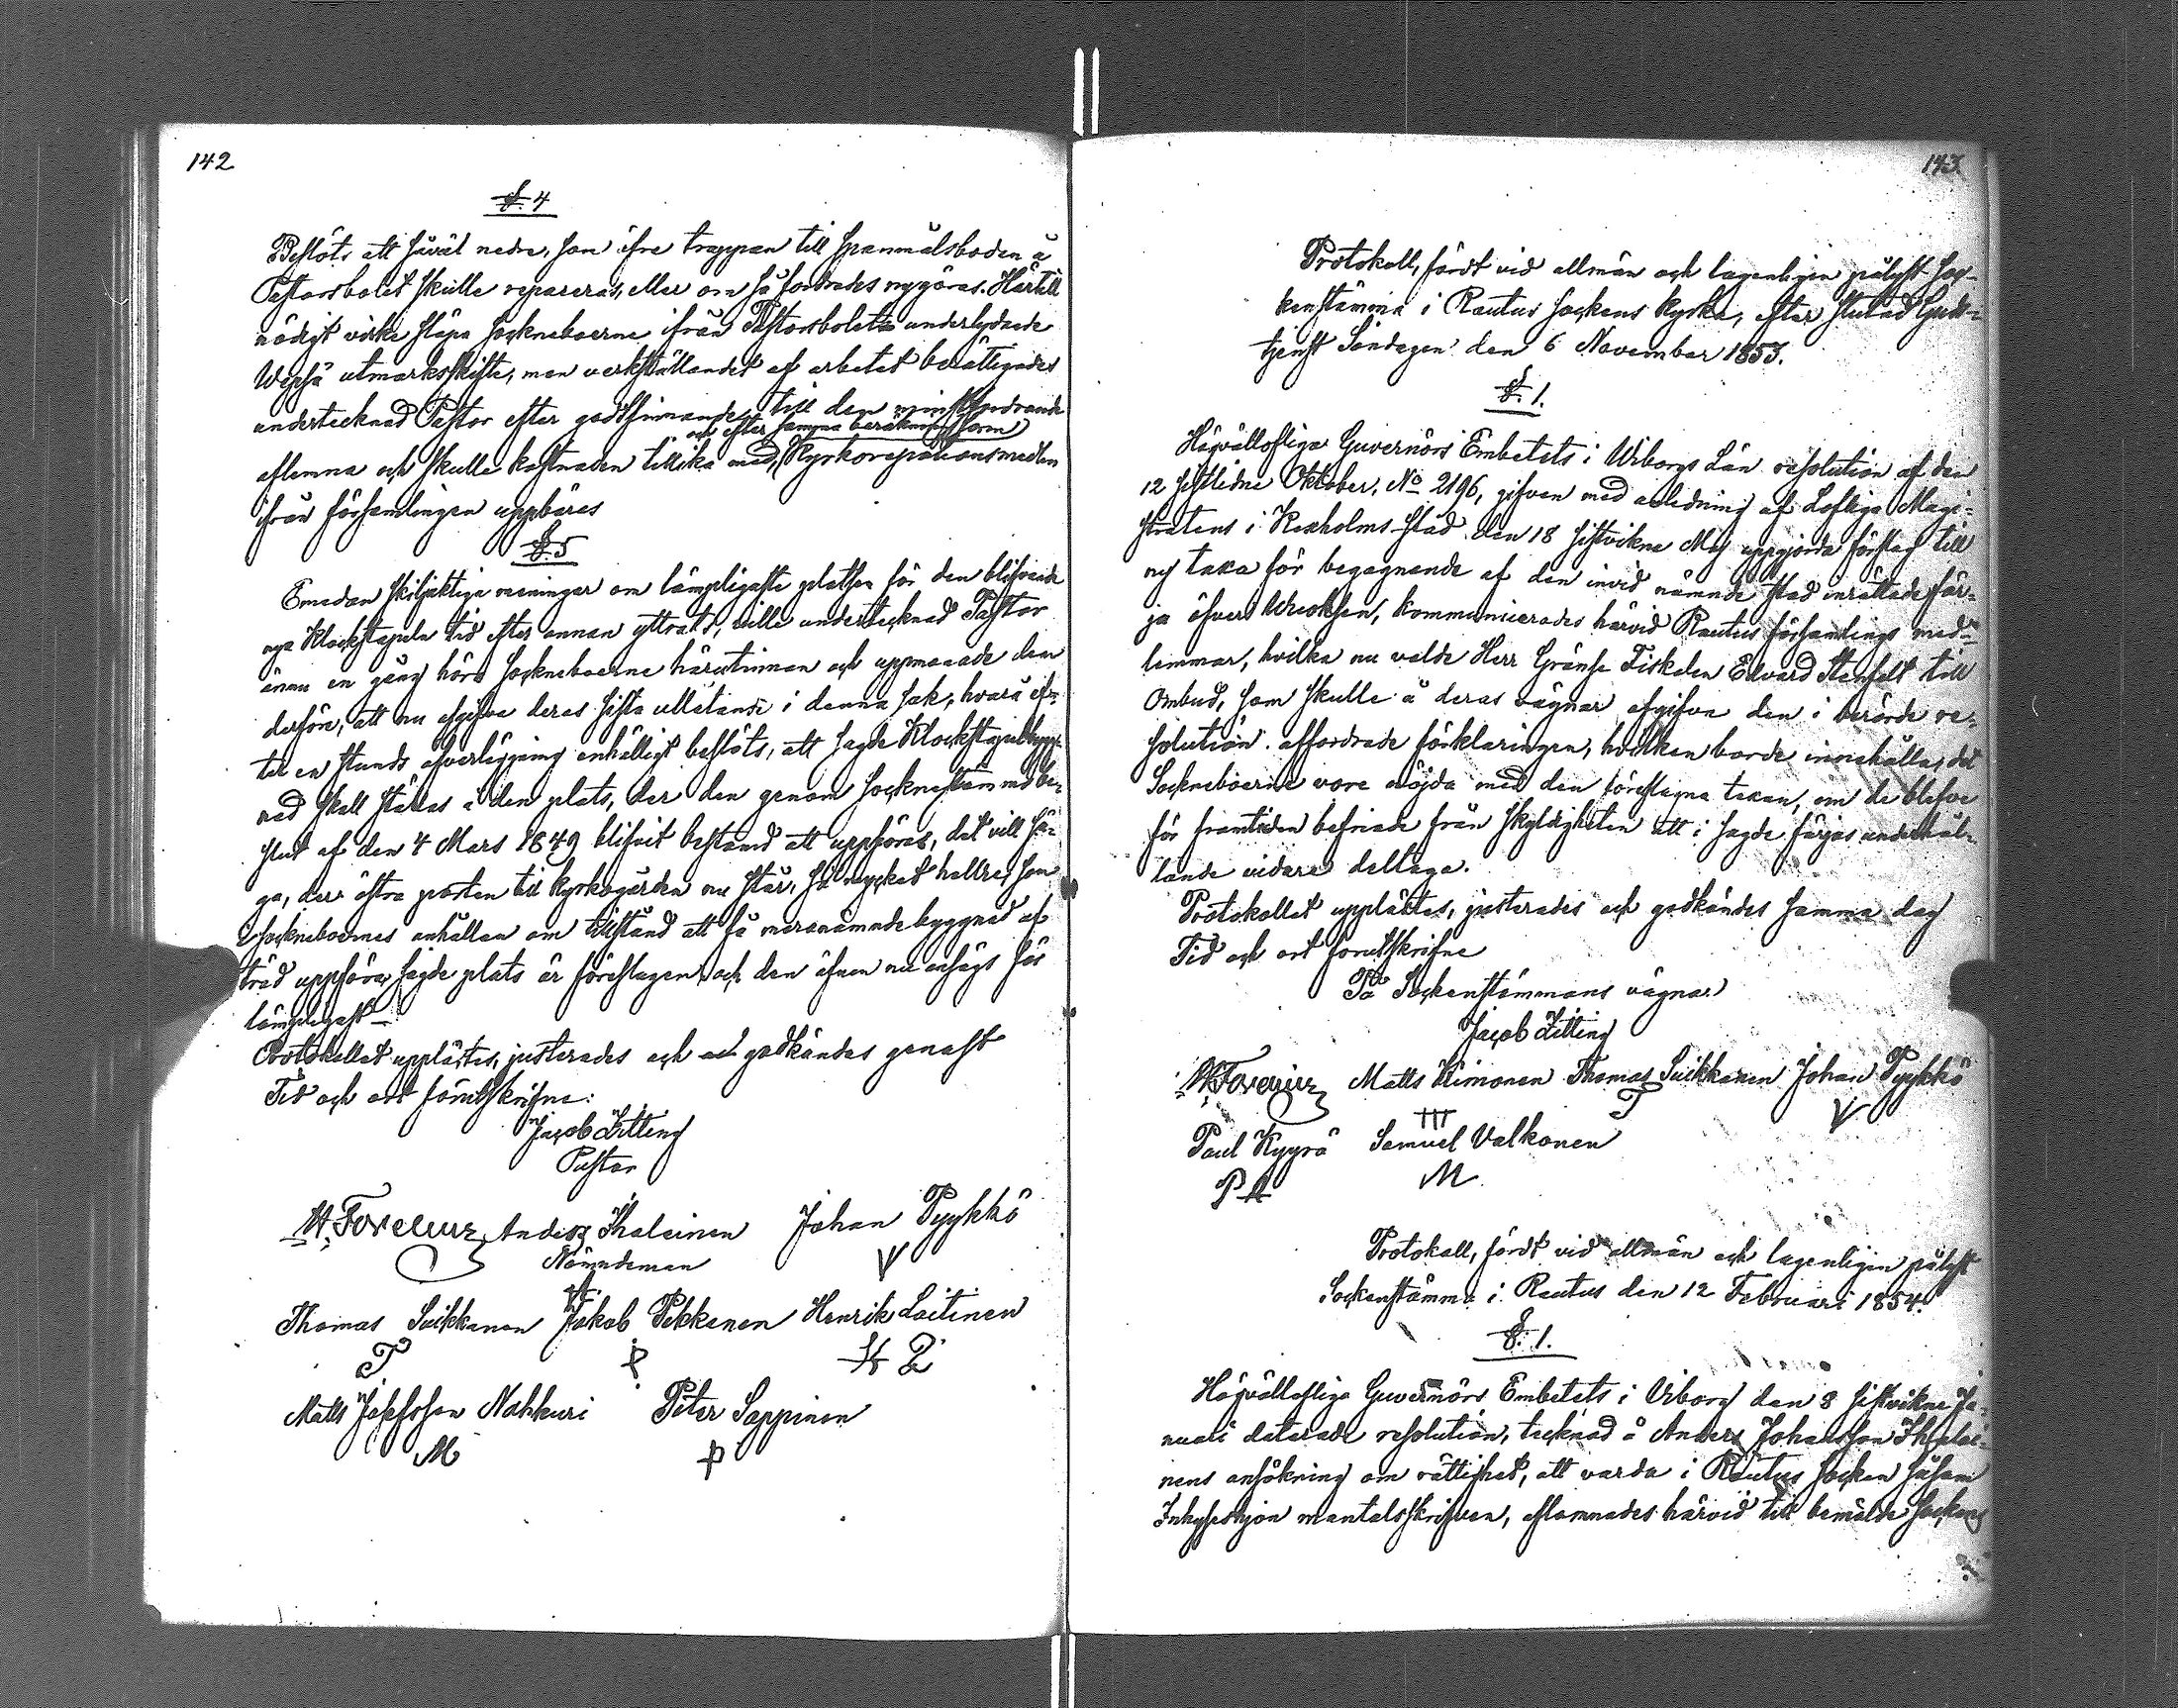 142
§. 4
Beslöts att såväl nedre, som öfre trappan till spanmålsboden å
Pastorsbolet skulle repareras, eller om så fordrades nygöras. Härtill
nödigt virke släpa sockneboerne ifrån Pastorsbolets underlydande
utmarksskifte, men verkställandet af arbetet berättigades
undertecknad Pastor efter godtfinnande till den minstfordrande
och efter samma beräkning som
aflemna och skulle kostnaden tillika med, Kyrkoreparationsmedlen
ifrån församlingen uppbäras
§. 5
Emedan skiljaktiga meningar om lämpligaste platsen för den blifvande
nya Klockstapeln tid efter annan yttrats, ville undertecknad Pastor
ännu en gång höra sockneboerne härutinnan och uppmanade dem
derföre, att nu afgifva deras sista utlåtande i denna sak, hvarå ef-
ter en stunds öfverläggning enhälligt beslöts, att sagde Klockstapelbygg-
nad skall ställas å den plats, der den genom sockenstämmobe-
slut af den 4 Mars 1849 blifvit bestämd att uppföras, det vill sä-
ga, der östra porten till kyrkogården nu står, så mycket hellre, som
i sockneboernes anhållan om tillstånd att få meranämnde byggnad af
träd uppföra, sagde plats är föreslagen och den äfven nu ansågs för
lämpligast.
Protokollet upplästes, justerades och godkändes genast
Tid och ort förutskrifne:
Jacob Zitting
Pastor
Anders Ihalainen Johan Pyykkö
Nämndeman
Thomas Suikkanen Jakob Pekkanen Henrik Laitinen
T P H L
Matts Josefsson Nahkuri Peter Sappinen
M P
143
Protokoll, fördt vid allmän och lagenligen pålyst soc-
kenstämma i Rautus sockens kyrka, efter slutad Guds-
tjenst Söndagen den 6 November 1853.
§. 1.
Högvällofliga Guvernörs Embetets i Wiborgs Län resolution af den
12 sistlidne Oktober, No 2196, gifven med anledning af Lofliga Magi-
stratens i Kexholms stad den 18 sistvikne Maj uppgjorda förslag till
ny taxa för begagnande af den invid nämnde stad inrättade fär-
ja öfver Wuoksen, kommunicerades härvid Rautus församlings med-
lemmar, hvilka nu valde Herr Gränse Fiskalen Edvard till
Ombud, som skulle å deras vägnar afgifva den i berörde re-
solution affordrade förklaringen, hvilken borde innehålla, det
Sockneboerne vore nöjda med den föreslagna taxan, om de blefve
för framtiden befriade från skyldigheten att i sagde färjas underhål-
lande vidare deltaga.
Protokollet upplästes, justerades och godkändes samma dag
Tid och ort förutskrifne
På Sockenstämmans vägnar
Jacob Zitting
Matts Kimonen Thomas Suikkanen Johan Pyykkö
T
Paul Kyyrö Samuel Valkonen
M
Protokoll, fördt vid allmän och lagenligen pålyst
Sockenstämma i Rautus den 12 Februari 1854.
§. 1.
Högvällofliga Guvernörs Embetets i Viborg den 8 sistvikne Ja-
nuari daterade resolution, tecknad å Anders Johansson Ihalai-
nens ansökning om rättighet, att varda i Rautus socken såsom
Inhyseshjon mantalsskrifven, aflemnades härvid till bemälde sockens